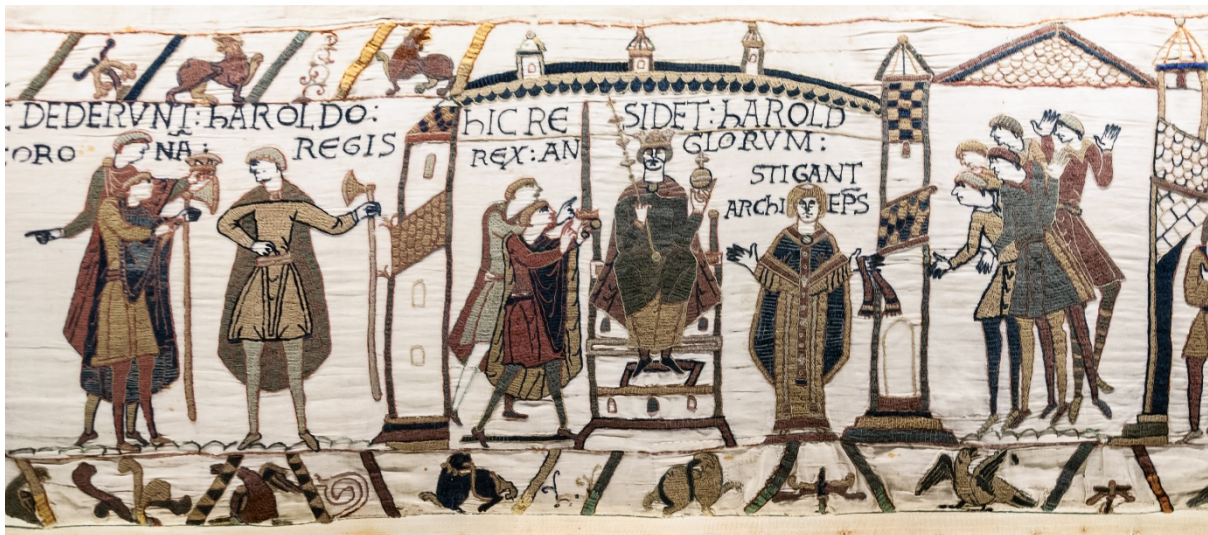 DEDERVNT: hAROLDO:
CORONA: REGIS
hIC RESIDET: hAROLD
REX: ANGLORVM:
STIGANT
ARChIEP̅S